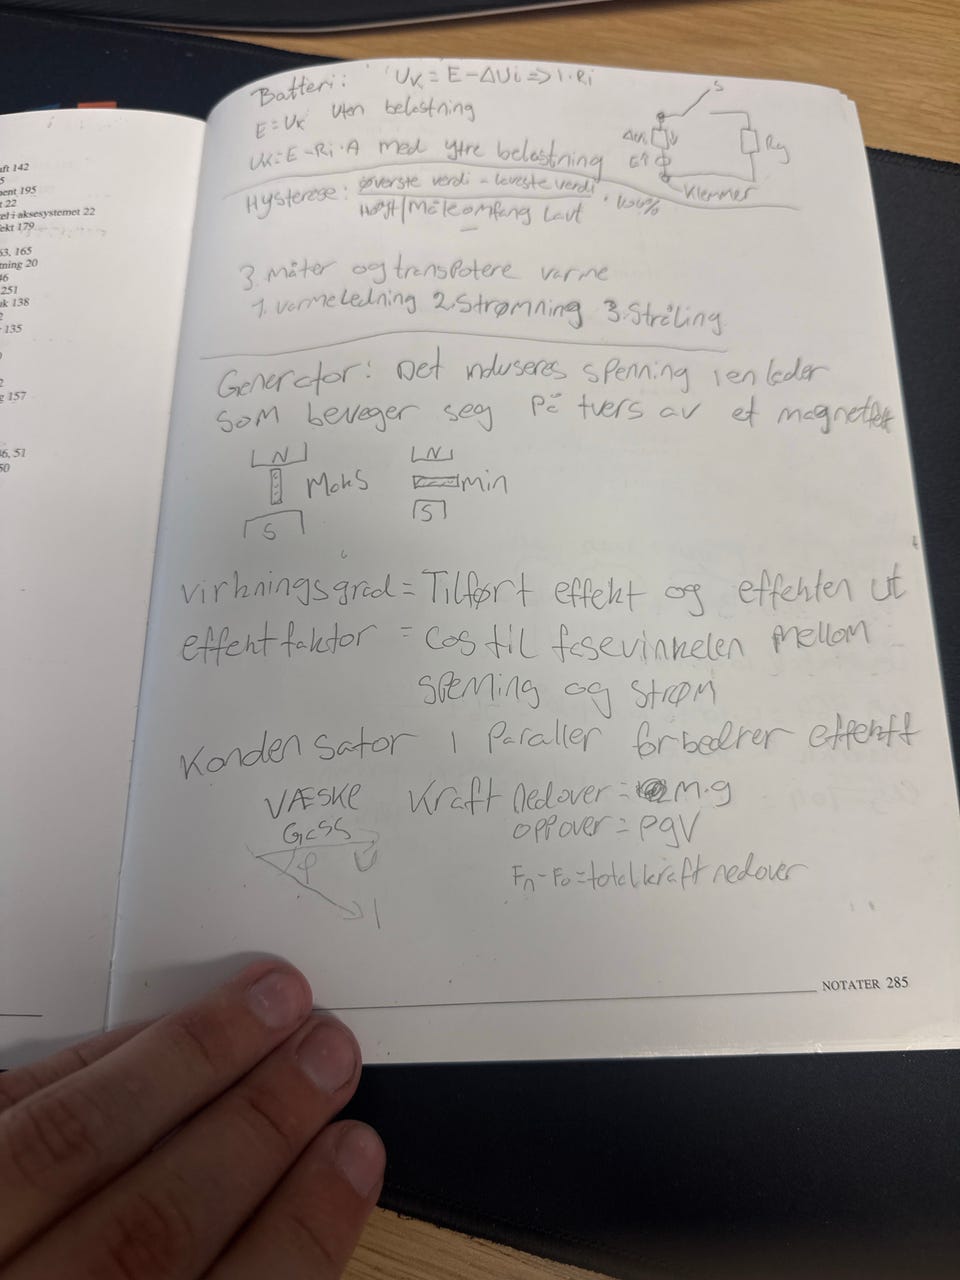 aft 142
5
nent 195
t 22
el i aksesystemet 22
ekt 179
63, 165
tning 20
46
251
uk 138
2
r 135
)
2
g 157
46, 51
50
Batteri: Uk = E - ΔUi => I·Ri
E = Uk Uten belastning
Uk = E - Ri · A med ytre belastning
S
ΔUi
E
Ry
Klemmer
Hysterese: øverste verdi - laveste verdi · 100%
Høyt/Måleomfang Lavt
3. Måter og transpotere varme
1. varmeledning 2. Strømning 3. Stråling
Generator: Det induseres spenning i en leder
som beveger seg på tvers av et magnetfelt
N N
Maks min
S S
virkningsgrad = Tilført effekt og effekten ut
effektfaktor = cos til fasevinkelen mellom
spenning og strøm
Kondensator i Paraller forbedrer effektf
VÆSKE Kraft nedover = m·g
Gass oppover = ρgV
φ U
I
Fn - Fo = total kraft nedover
NOTATER 285